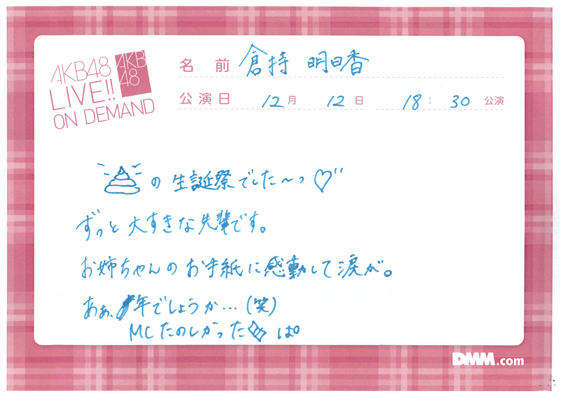 AKB48
LIVE!!
ON DEMAND
AKB
48
名前 倉持 明日香
公演日 12月 12日 18:30 公演
の生誕祭でした〜っ♡"
ずっと大すきな先輩です。
お姉ちゃんのお手紙に感動して涙が。
あぁ、年でしょうか…(笑)
MCたのしかった ぱ
DMM.com